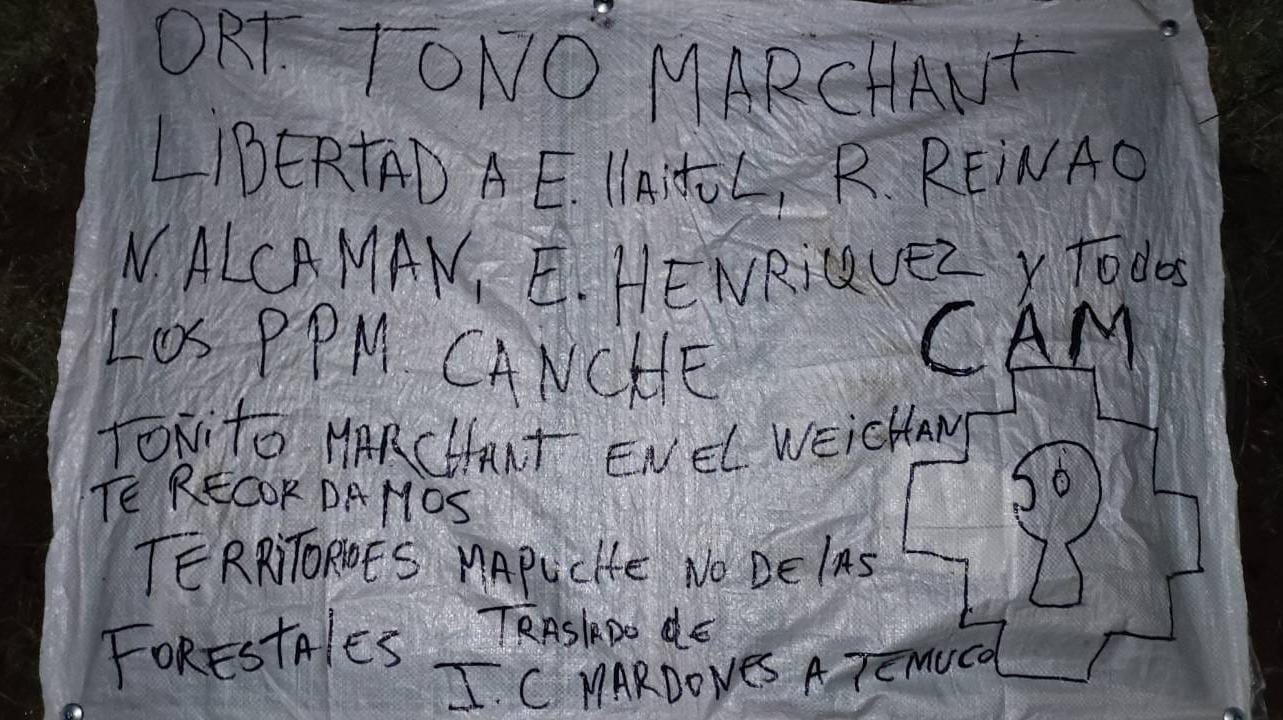 ORT. TOÑO MARCHANT
LIBERTAD A E. llAituL, R. REINAO
N. ALCAMAN, E. HENRIQUEZ y Todos
LOS PPM. CANCHE
CAM
TOÑITO MARCHANT EN EL WEICHAN
TE RECORDAMOS
TERRITORIOES MAPUCHE NO DE lAS
FORESTAlES
TRASlADO de
J. C MARDONES A TEMUCO